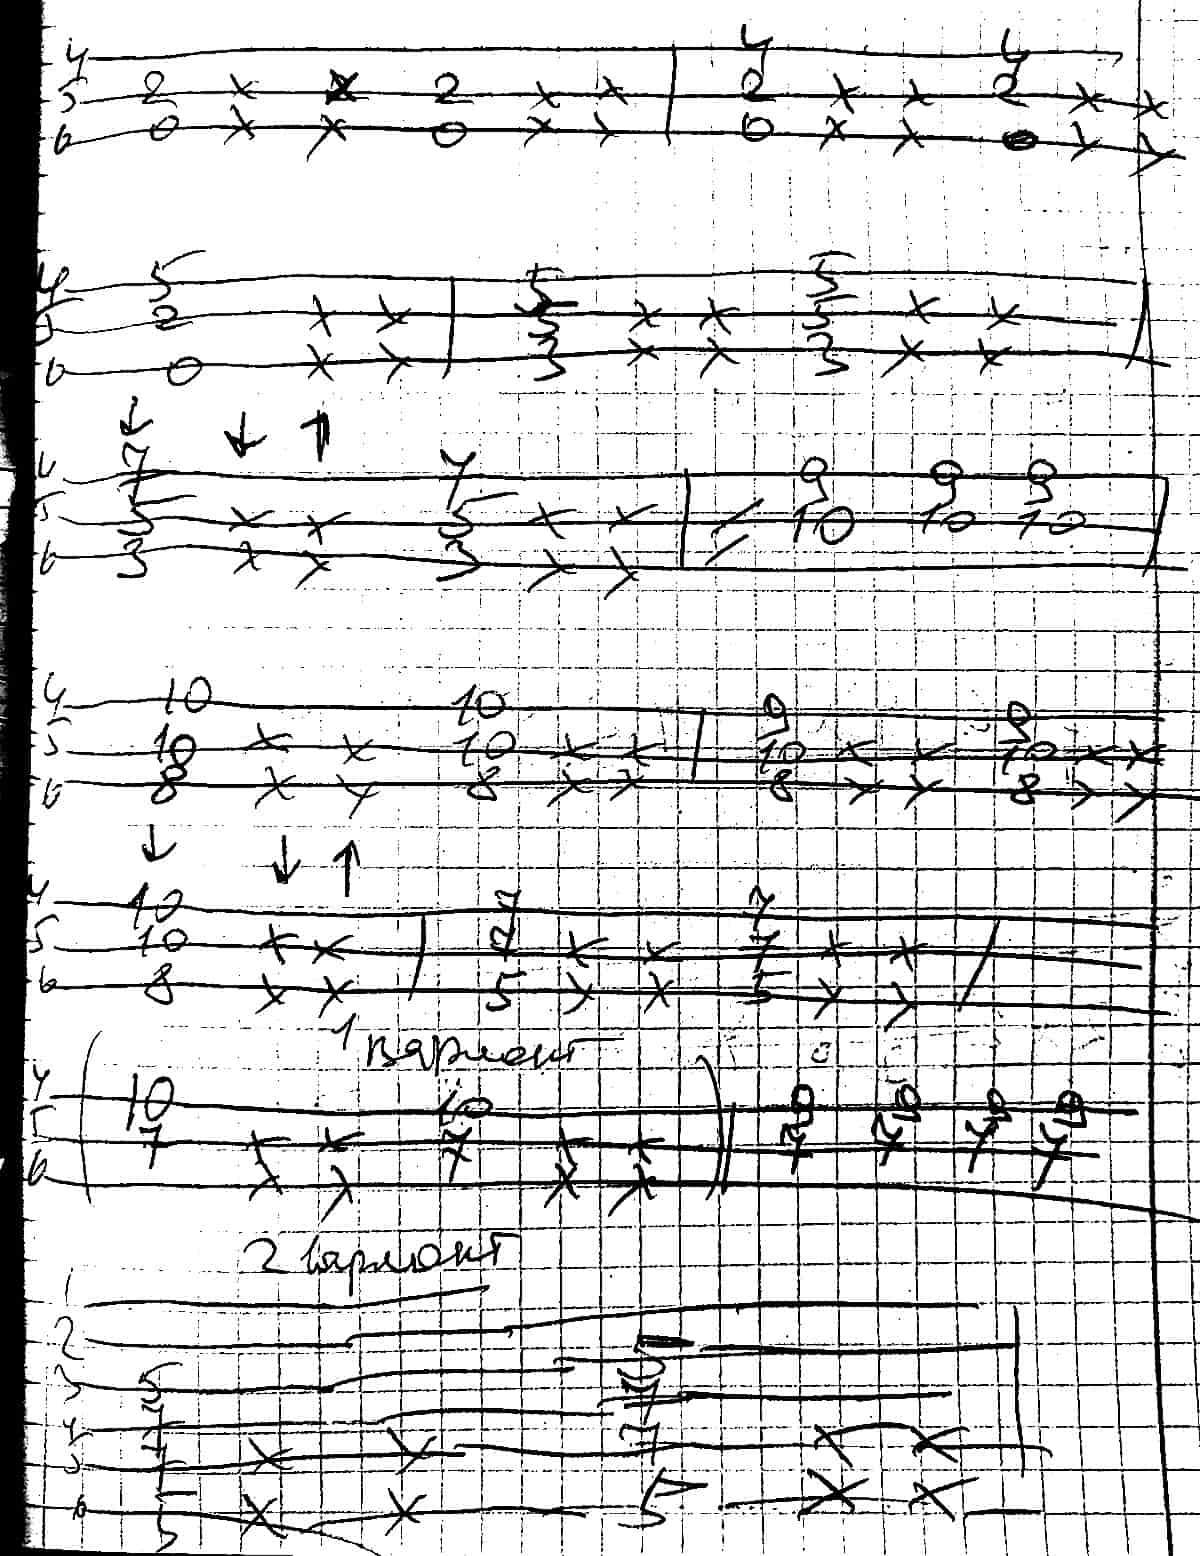 4 4 4
5 2 x x 2 x x 2 x x 2 x x
6 0 x x 0 x x 0 x x 0 x x
4 5 5 5
5 2 x x 5 x x 5 x x
6 0 x x 3 x x 3 x x
↓ ↓ ↑
4 7 7 9 9 9
5 5 x x 5 x x / 10 10 10
6 3 x x 3 x x /
4 10 10 9 9
5 10 x x 10 x x 10 x x 10 x x
6 8 x x 8 x x 8 x x 8 x x
↓ ↓ ↑
4 10 7 7
5 10 x x 7 x x 7 x x
6 8 x x 5 x x 5 x x
1 вариант
4 10 10 9 9 9 9
5 7 x x 7 x x 7 7 7 7
6 x x x x
2 вариант
1
2
3 5 5
4 7 7
5 7 x x 7 x x
6 5 x x 5 x x